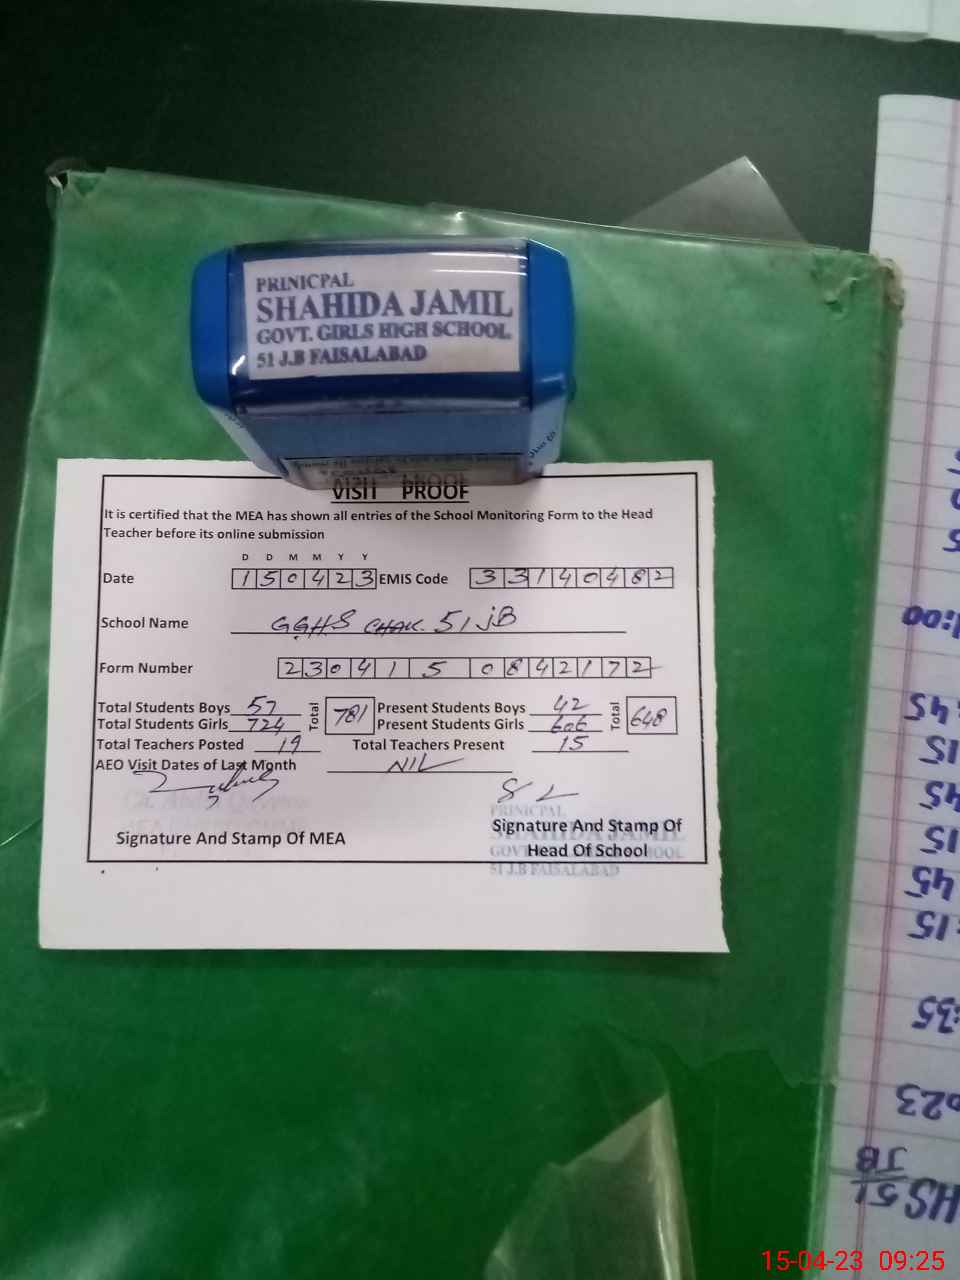 PRINICPAL
SHAHIDA JAMIL
GOVT. GIRLS HIGH SCHOOL
51 J.B FAISALABAD
VISIT PROOF
It is certified that the MEA has shown all entries of the School Monitoring Form to the Head
Teacher before its online submission
D D M M Y Y
Date 150423 EMIS Code 33140482
School Name GGHS CHAK. 51 JB
Form Number 230415 0842172
Total Students Boys 57 Total 781 Present Students Boys 42 Total 648
Total Students Girls 724 Present Students Girls 606
Total Teachers Posted 19 Total Teachers Present 15
AEO Visit Dates of Last Month NIL
Signature And Stamp Of MEA
PRINICPAL
SHAHIDA JAMIL
Signature And Stamp Of
Head Of School
51 J.B FAISALABAD
:00
:45
:15
:45
:15
:45
:15
:35
023
HS 51
JB
15-04-23 09:25